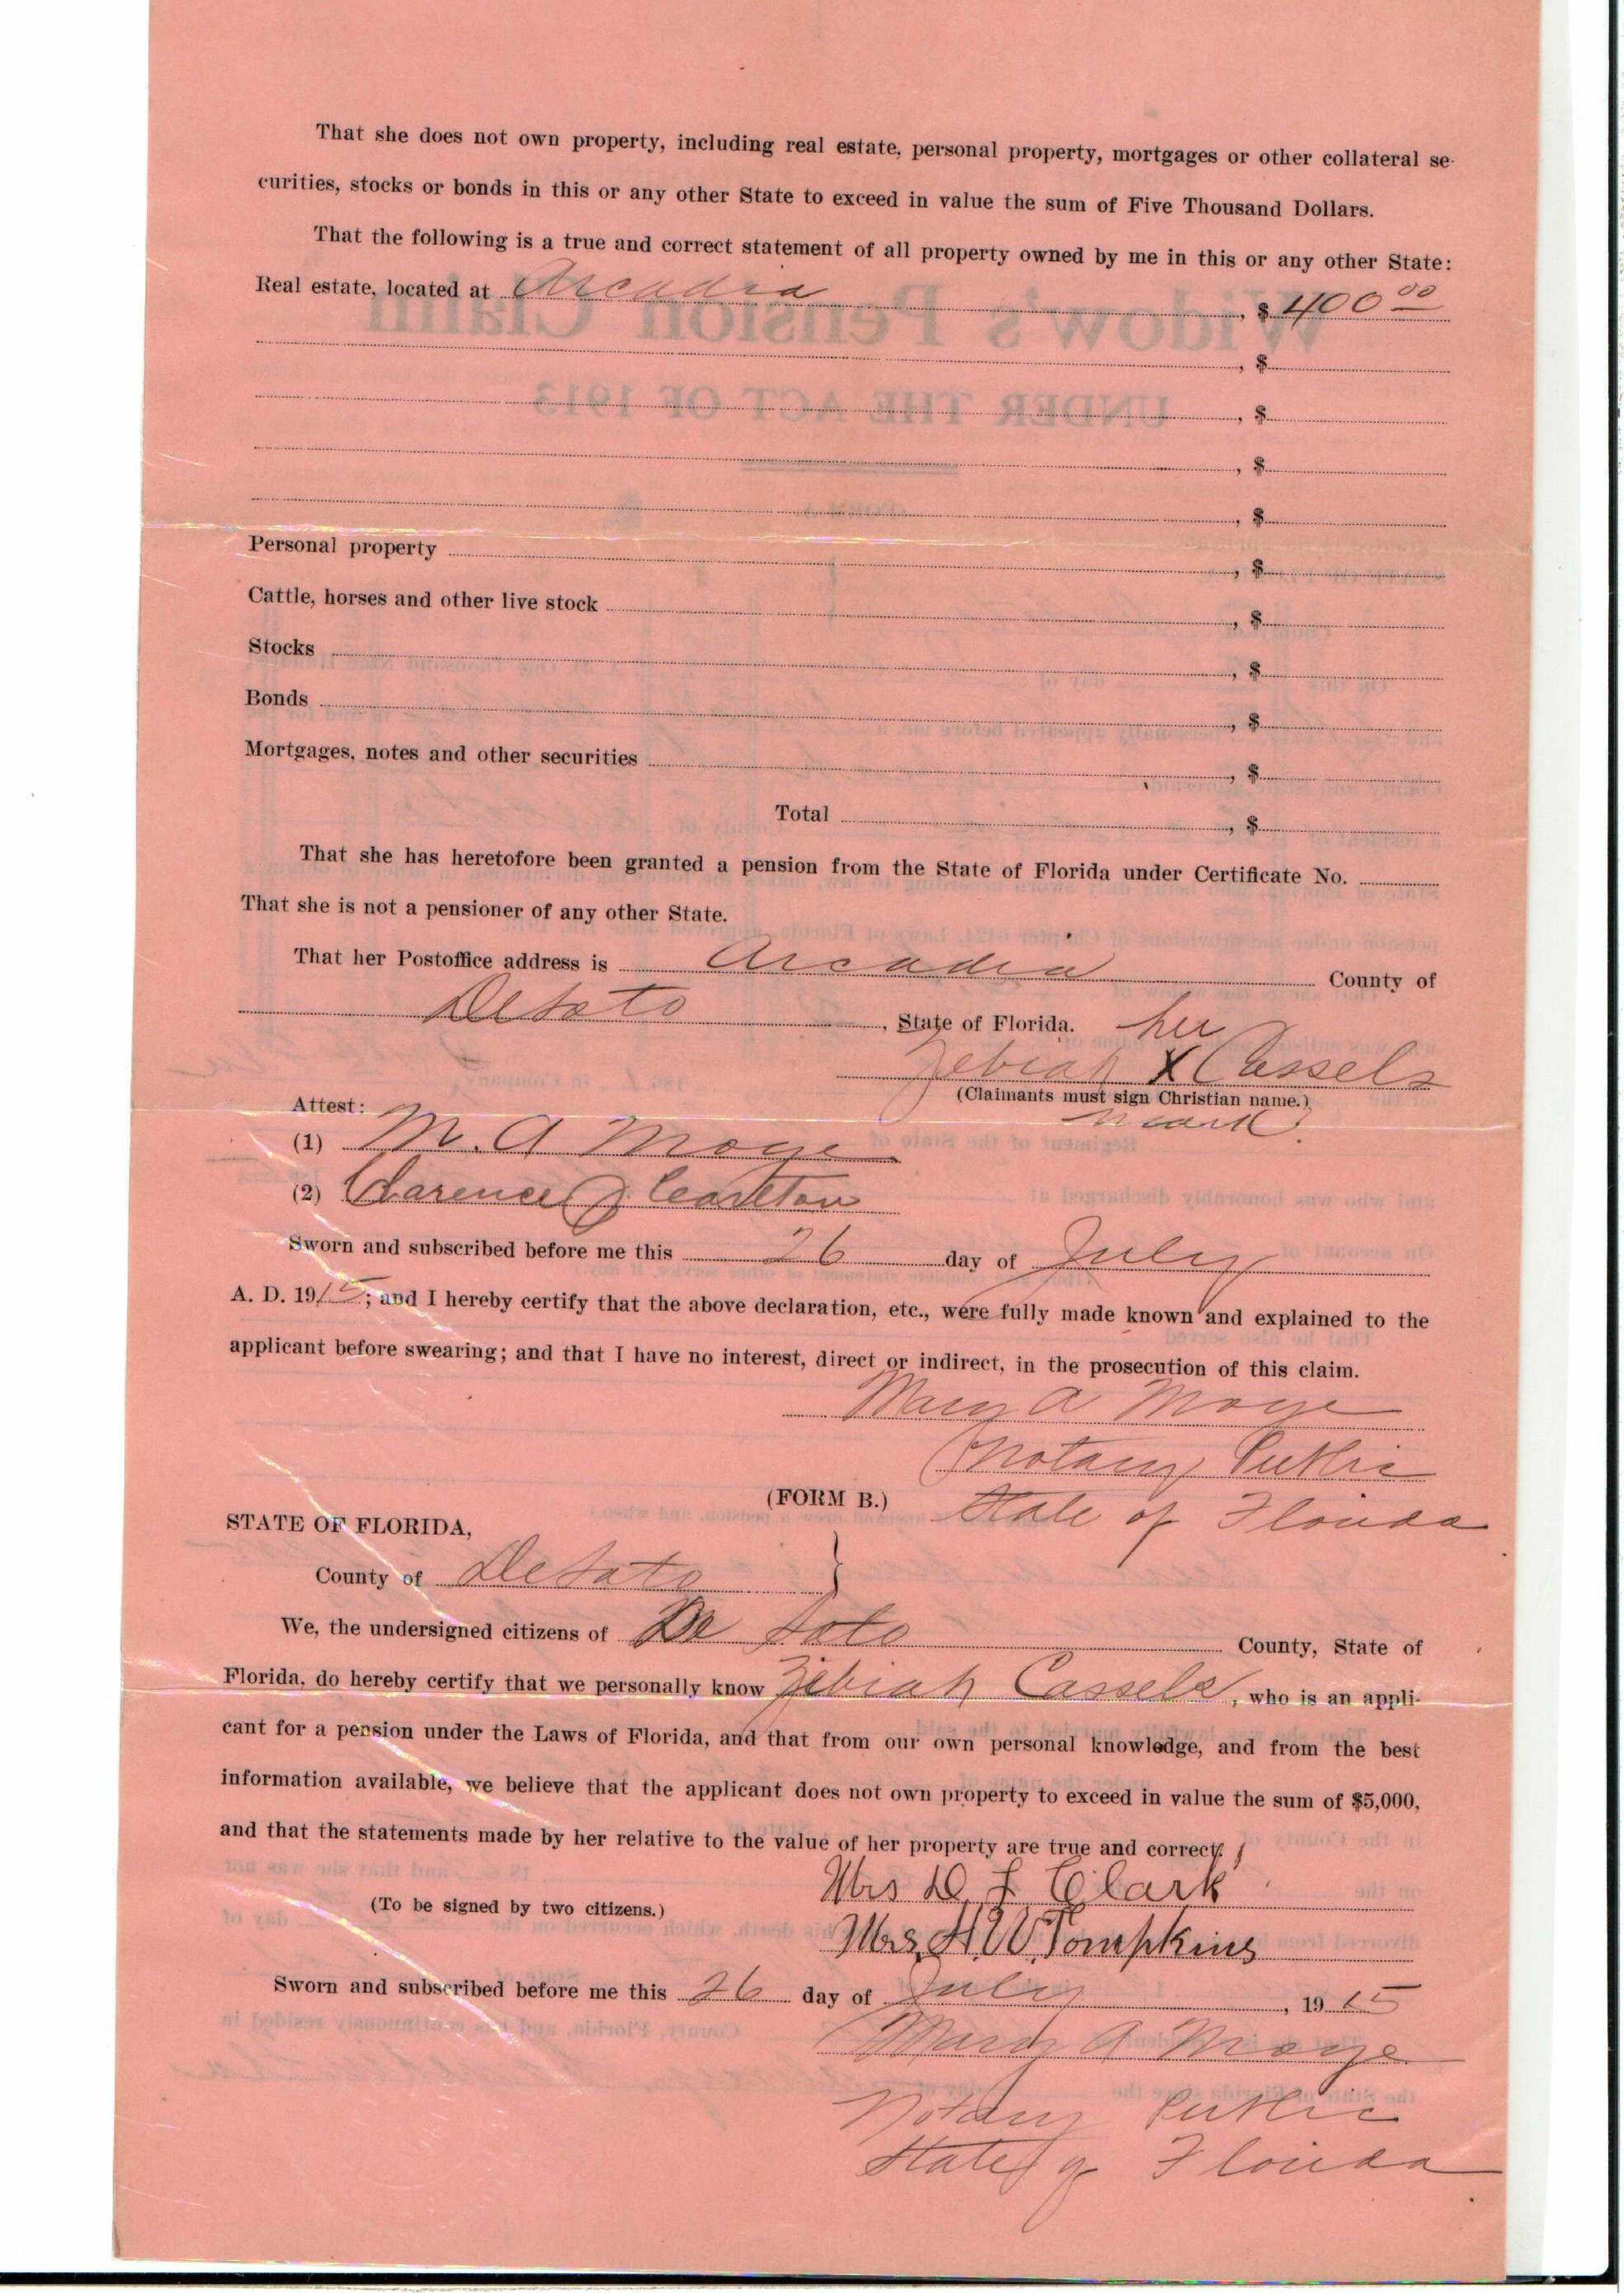 That she does not own property, including real estate, personal property, mortgages or other collateral se-
curities, stocks or bonds in this or any other State to exceed in value the sum of Five Thousand Dollars.
That the following is a true and correct statement of all property owned by me in this or any other State:
Real estate, located at Arcadia, $ 400 00
, $
, $
, $
, $
Personal property , $
Cattle, horses and other live stock , $
Stocks , $
Bonds , $
Mortgages, notes and other securities , $
Total , $
That she has heretofore been granted a pension from the State of Florida under Certificate No.
That she is not a pensioner of any other State.
That her Postoffice address is Arcadia County of
DeSoto, State of Florida. her
Zebiah X Cassels
(Claimants must sign Christian name.)
mark.
Attest:
(1) M. A Moye
(2) Clarence J Carlton
Sworn and subscribed before me this 26 day of July
A. D. 1915; and I hereby certify that the above declaration, etc., were fully made known and explained to the
applicant before swearing; and that I have no interest, direct or indirect, in the prosecution of this claim.
Mary A Moye
Notary Public
(FORM B.) State of Florida
STATE OF FLORIDA,
County of DeSoto }
We, the undersigned citizens of De Soto County, State of
Florida, do hereby certify that we personally know Zibiah Cassels, who is an appli-
cant for a pension under the Laws of Florida, and that from our own personal knowledge, and from the best
information available, we believe that the applicant does not own property to exceed in value the sum of $5,000,
and that the statements made by her relative to the value of her property are true and correct.
Mrs D. F Clark
(To be signed by two citizens.)
Mrs. H. W. Tompkins
Sworn and subscribed before me this 26 day of July, 1915
Mary A Moye
Notary Public
State of Florida